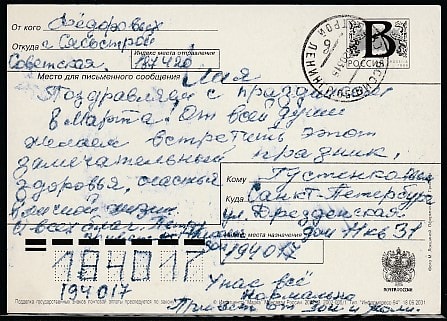 От кого Фёдоровых
Откуда г. Сясьстрой
Советская
Индекс места отправления
187420
Место для письменного сообщения
В
РОССИЯ
Поздравляем с праздником
8 Марта! От всей души
желаем встретить этот
замечательный праздник,
здоровья, счастья
в личной жизни
и всех благ
Кому Густенковым
Куда Санкт-Петербург
ул. Дрезденская
дом 11 кв 31
Индекс места назначения
194017
194017
194017
У нас всё
нормально
Привет от Зои и Коли.
ПОЧТА РОССИИ